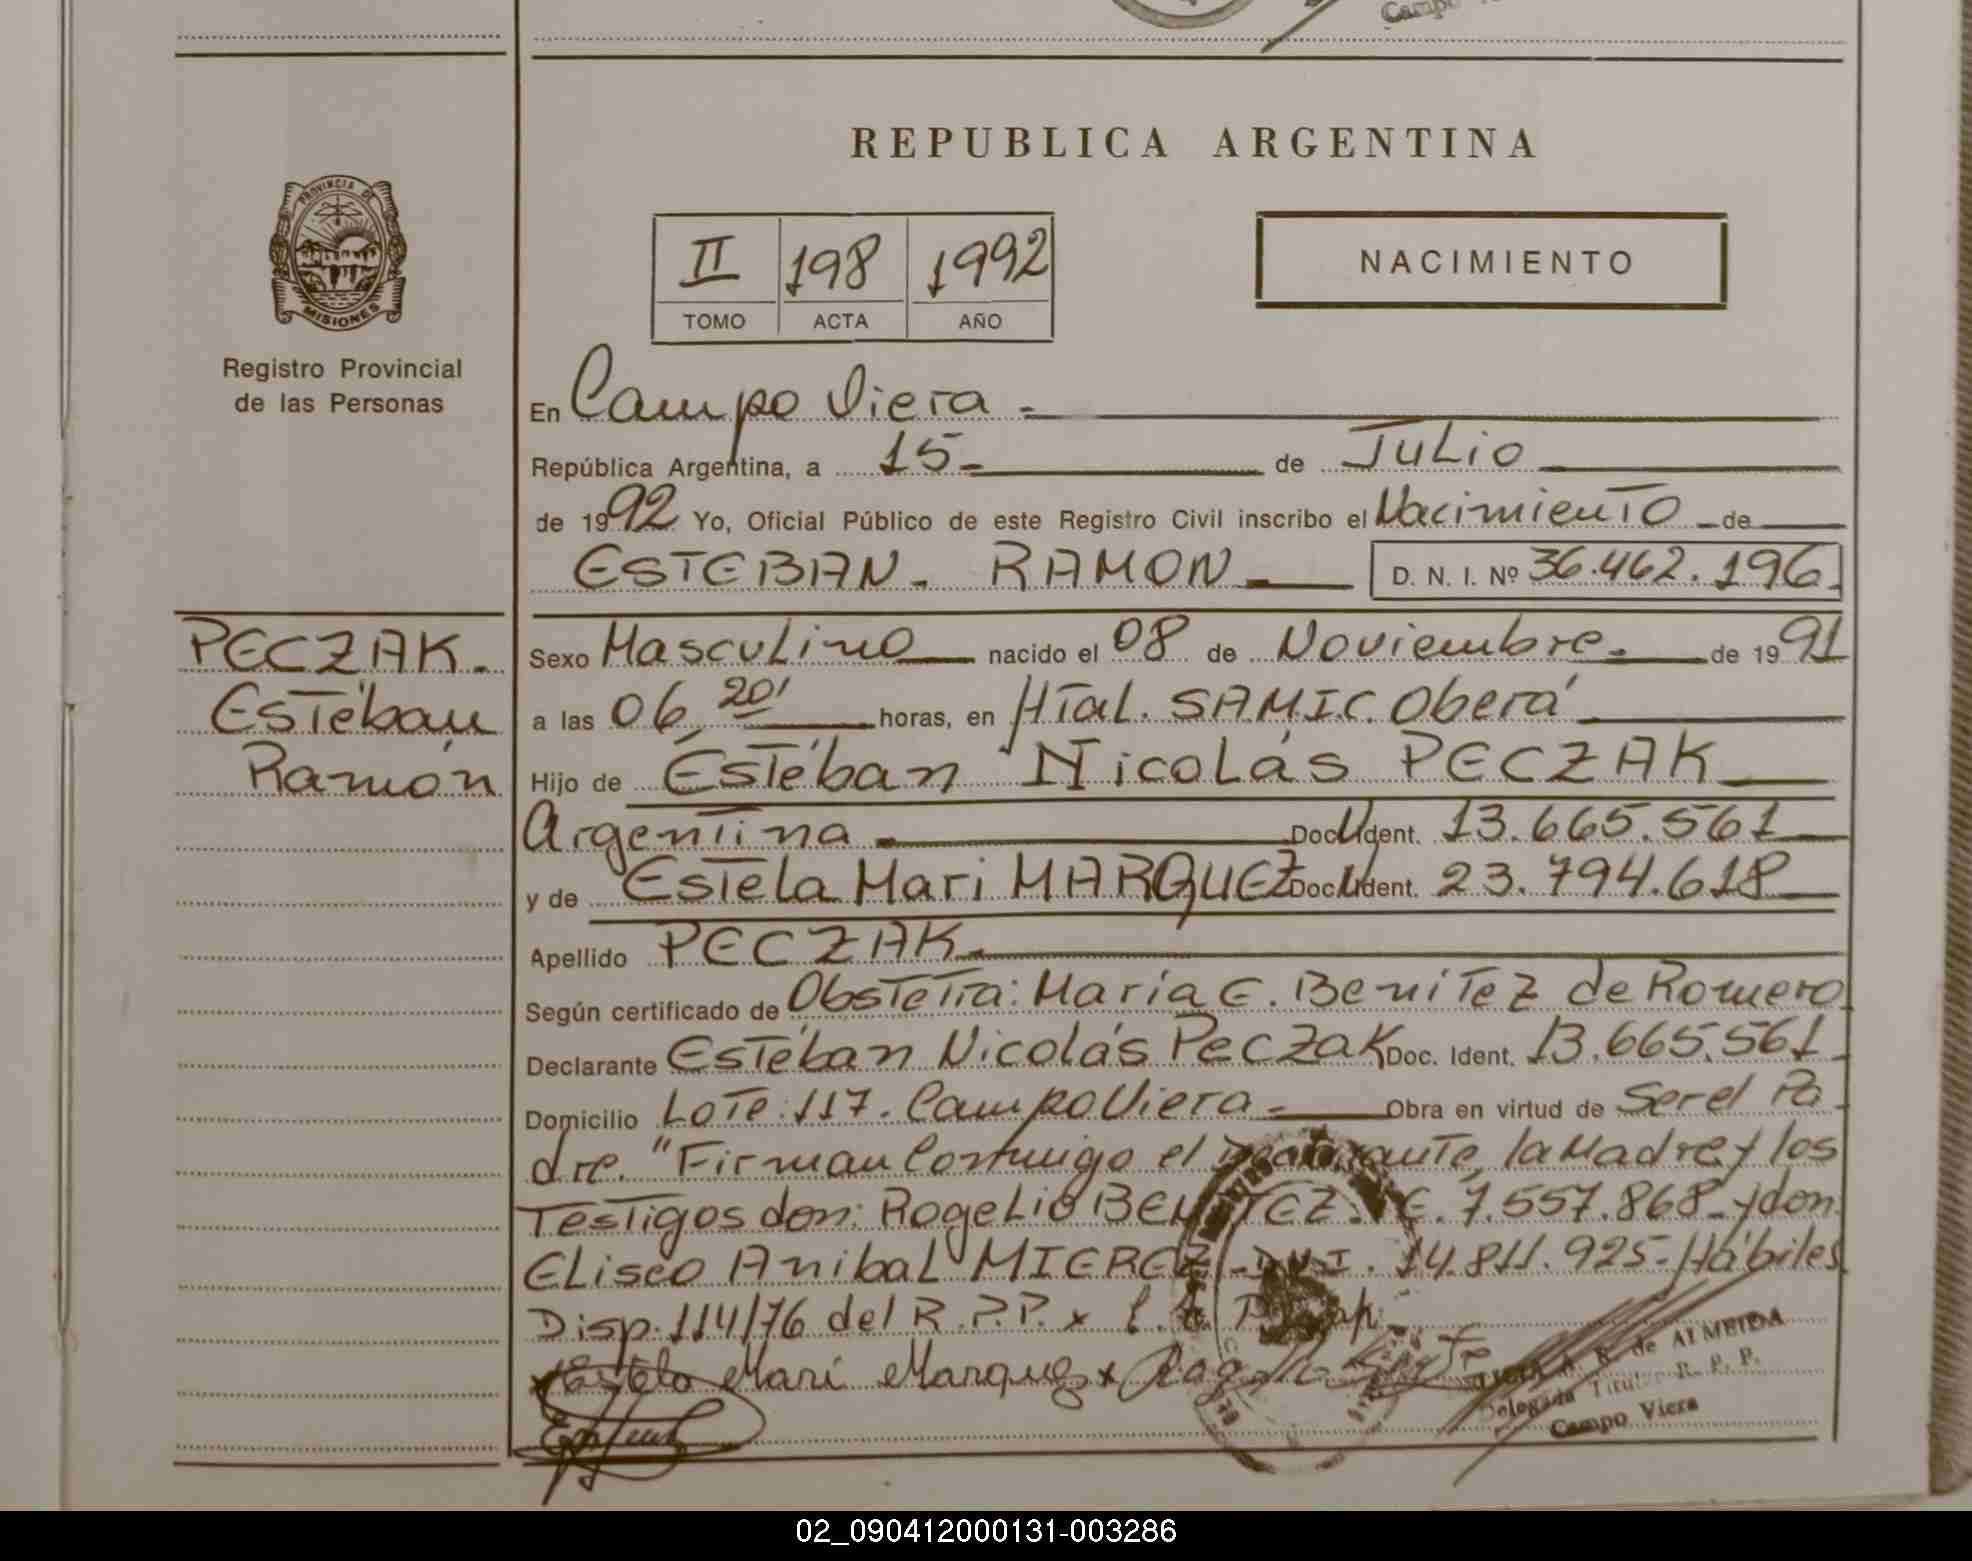 Campo
REPUBLICA ARGENTINA
PROVINCIA DE
MISIONES
Registro Provincial
de las Personas
II 198 1992
TOMO ACTA AÑO
NACIMIENTO
En Campo Viera.-
República Argentina, a 15- de Julio
de 1992 Yo, Oficial Público de este Registro Civil inscribo el Nacimiento de
ESTEBAN. RAMON D. N. I. Nº 36.462.196.
PECZAK.
Estéban
Ramón
Sexo Masculino nacido el 08 de Noviembre. de 1991
a las 06 20' horas, en Htal. SAMIC. Oberá
Hijo de Estéban Nicolás PECZAK
Argentina Doc. Ident. 13.665.561
y de Estela Mari MARQUEZ Doc. Ident. 23.794.618
Apellido PECZAK.
Según certificado de Obstetra: María E. Benitez de Romero
Declarante Estéban Nicolás Peczak Doc. Ident. 13.665.561.
Domicilio Lote 117. Campo Viera.- Obra en virtud de Ser el Pa-
dre. "Firman Conmigo el Declarante, la Madre y los
Testigos don: Rogelio BENITEZ. E. 7.557.868- y don
Eliseo Anibal MIEREZ- D.N.I. 14.811.925- Hábiles
Disp. 114/76 del R.P.P. x
x Estela Mari Marquez x
A. R. de ALMEIDA
Delegada Titular R. P. P.
Campo Viera
02_090412000131-003286